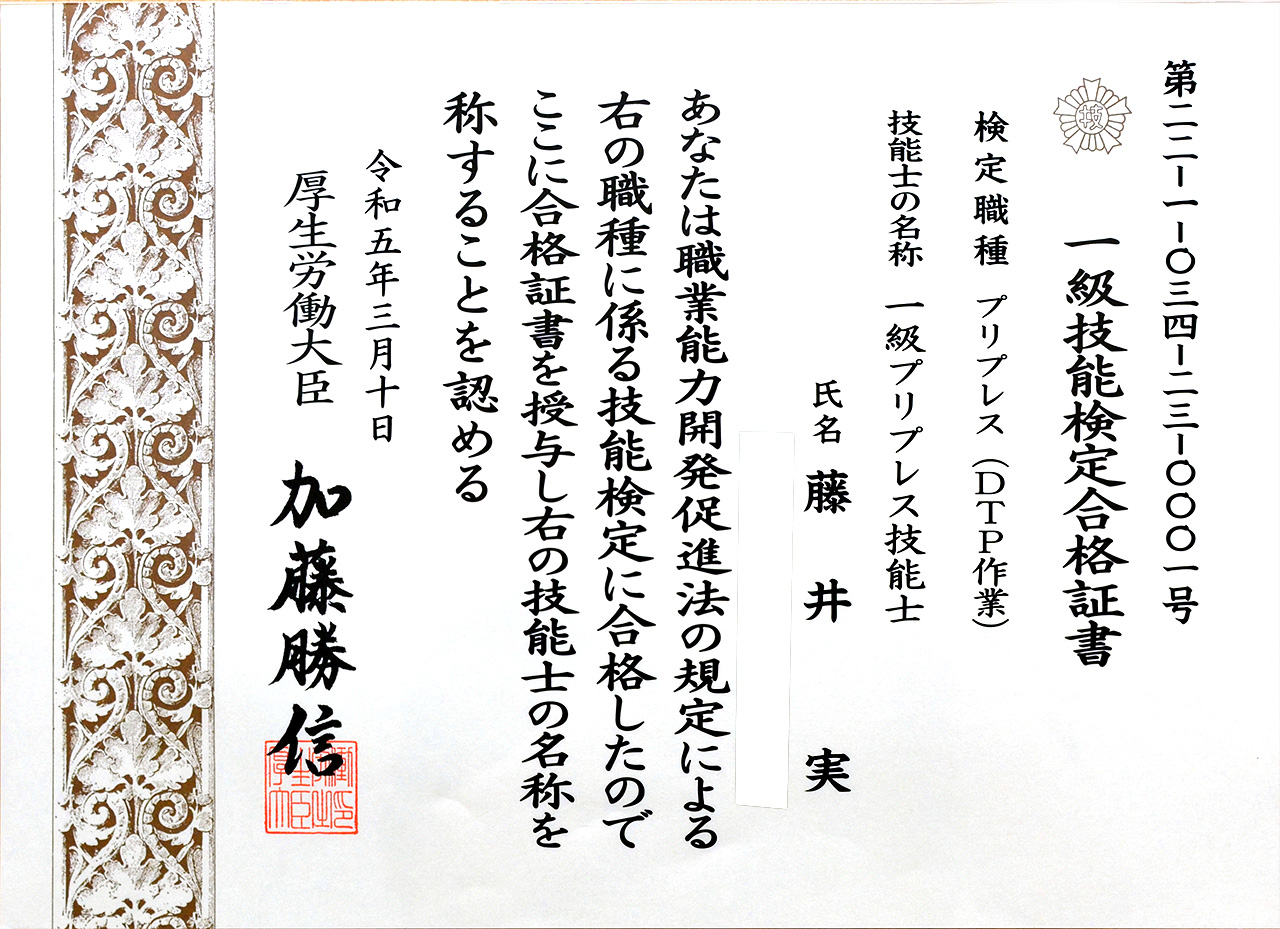 第二二-一-〇三四-二三-〇〇〇一号
技
一級技能検定合格証書
検定職種 プリプレス(DTP作業)
技能士の名称 一級プリプレス技能士
氏名 藤井 実
あなたは職業能力開発促進法の規定による
右の職種に係る技能検定に合格したので
ここに合格証書を授与し右の技能士の名称を
称することを認める
令和五年三月十日
厚生労働大臣 加藤勝信